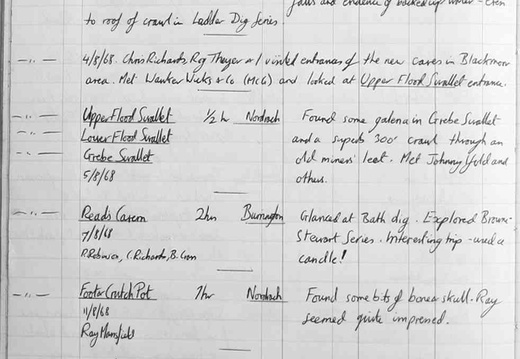 to roof of crawl in Ladder Dig Series.
and evidence of backed up water - even
-"- 4/8/68. Chris Richards, Roy Thayer & I visited entrances of the new caves in Blackmoor
area. Met Wanker Wicks & Co (MCG) and looked at Upper Flood Swallet entrance.
-"- Upper Flood Swallet ½ hr Nordrach Found some galena in Grebe Swallet
-"- Lower Flood Swallet and a superb 300' crawl through an
-"- Grebe Swallet old miners' leet. Met Johnny Ifold and
5/8/68 others.
-"- Reads Cavern 2hrs Burrington Glanced at Bath dig. Explored Browne-
7/8/68 Stewart Series. Interesting trip - used a
P. Robinson, C. Richards, B. candle!
-"- Footer Crutch Pot 1hr Nordrach Found some bits of bone & skull. Ray
11/8/68 seemed quite impressed.
Ray Mansfield